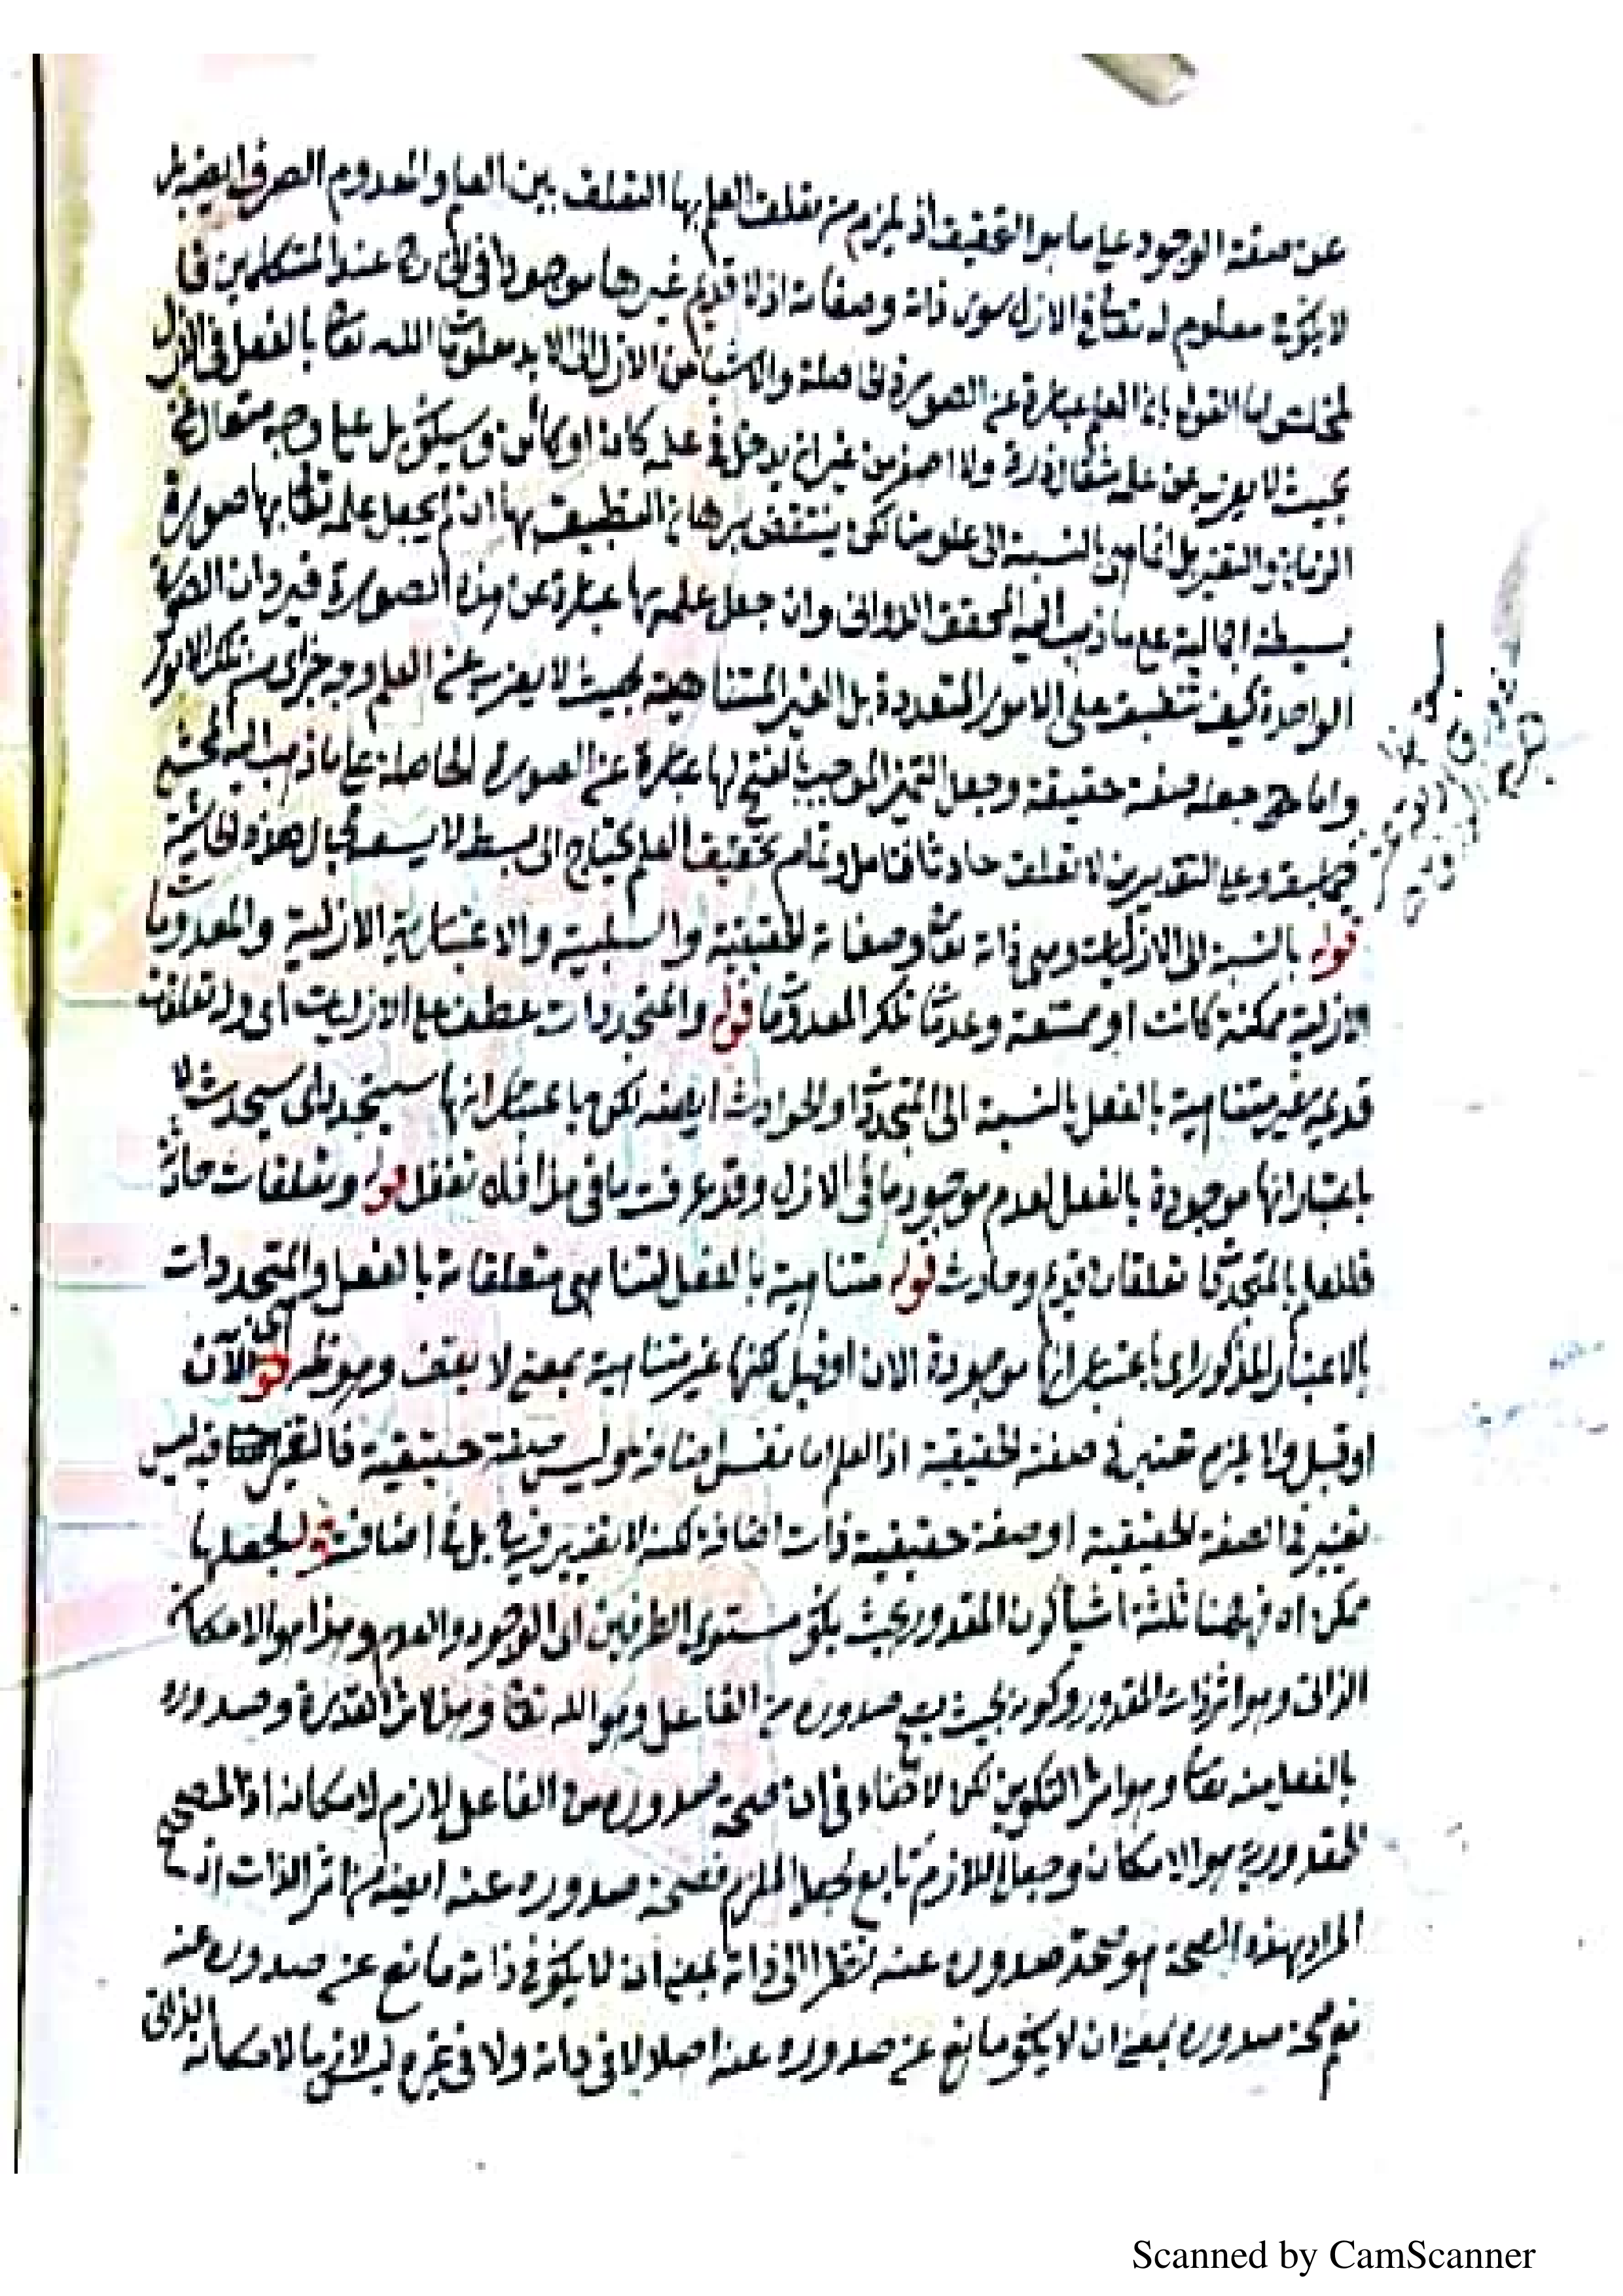 عن صفة الوجود على ما هو التحقيق اذ يلزم من تعلق العلم بها التعلق بين العلم والمعدوم الصرف
لا يكون معلوم له تعالى في الازل سوى ذاته وصفاته اذ لا قديم غيرها موجودا في الخارج عند المتكلمين
القول بان العلم عبارة عن الصورة الحاصلة والاشياء من الازل الى الابد معلومة الله تعالى بالفعل في الازل
بحيث لا يعزب عن علمه مثقال ذرة ولا اصغر من غير ان يدخل في علمه كان او كائن وسيكون بل على وجه متعال عن
الزمان والتغير بل انما هي بالنسبة الى علومنا لكن ينتقض برهان التطبيق بها ان لم يجعل علمه تعالى بها صورة
بسيطة اجمالية على ما ذهب اليه المحقق الدواني وان جعل علمه بها عبارة عن هذه الصورة فيرد ان الصورة
الواحدة كيف تنطبق على الامور المتعددة بل الغير المتناهية بحيث لا يعزب عن العلم وجه جزئي من تلك الامور
واما جعله صفة حقيقة وجعل التميز الموجب بالفتح لها عبارة عن الصورة الحاصلة على ما ذهب اليه المحشي
وعلى التقديرين لا تعلق حادثا فتامل وتمام تحقيق العلم يحتاج الى بسط لا يسعه مجال هذه الحاشية
قوله بالنسبة الى الازليات وهي ذاته تعالى وصفاته الحقيقية والسلبية والاعتبارية الازلية والمعدومات
الازلية ممكنة كانت او ممتنعة وعدمات تلك المعدومات قوله والمتجددات عطف على الازليات اي وله تعلقات
قديمة غير متناهية بالفعل بالنسبة الى المتجددات والحوادث ايضا لكن باعتبار انها ستتجدد اي سيحدث لا
باعتبار انها موجودة بالفعل لعدم موجود ما في الازل وقد عرفت ما في هذا فلا تغفل قوله وتعلقات حادثة
فللعلم بالمتجددات تعلقان قديم وحادث قوله متناهية بالفعل لتناهي متعلقاته بالفعل والمتجددات
بالاعتبار المذكور اي باعتبار انها موجودة الآن او قبل لكنها غير متناهية بمعنى لا يقف وهو ظهر قوله الآن
او قبل ولا يلزم تغير في صفة الحقيقية اذ العلم اما نفس اضافة وليس صفة حقيقية فالتغير فيه ليس
تغير في الصفة الحقيقية او صفة حقيقية ذات اضافة لكنه لا تغير فيها بل في اضافته قوله لجعلها
ممكن اذ ههنا ثلثة اشياء كون المقدور بحيث يكون مستوي الطرفين اي الوجود والعدم وهذا هو الامكان
الذاتي وهو اثر ذات المقدور وكونه بحيث يصح صدوره من الفاعل وهو الله تعالى وهذا اثر القدرة وصدوره
بالفعل منه تعالى وهو اثر التكوين لكن لا خفاء في ان صحة صدوره من الفاعل لازم لامكانه اذ المصحح
للمقدورية هو الامكان وجعل اللازم تابع لجعل الملزوم فصحة صدوره عنه ايضا من اثر الذات اذ
المراد بهذه الصحة هو صحة صدوره عنه نظرا الى ذاته بمعنى ان لا يكون في ذاته مانع عن صدوره عنه
نعم صحة صدوره بمعنى ان لا يكون مانع عن صدوره عنه اصلا لا في ذاته ولا في غيره ليس لازما لامكانه الذاتي
Scanned by CamScanner